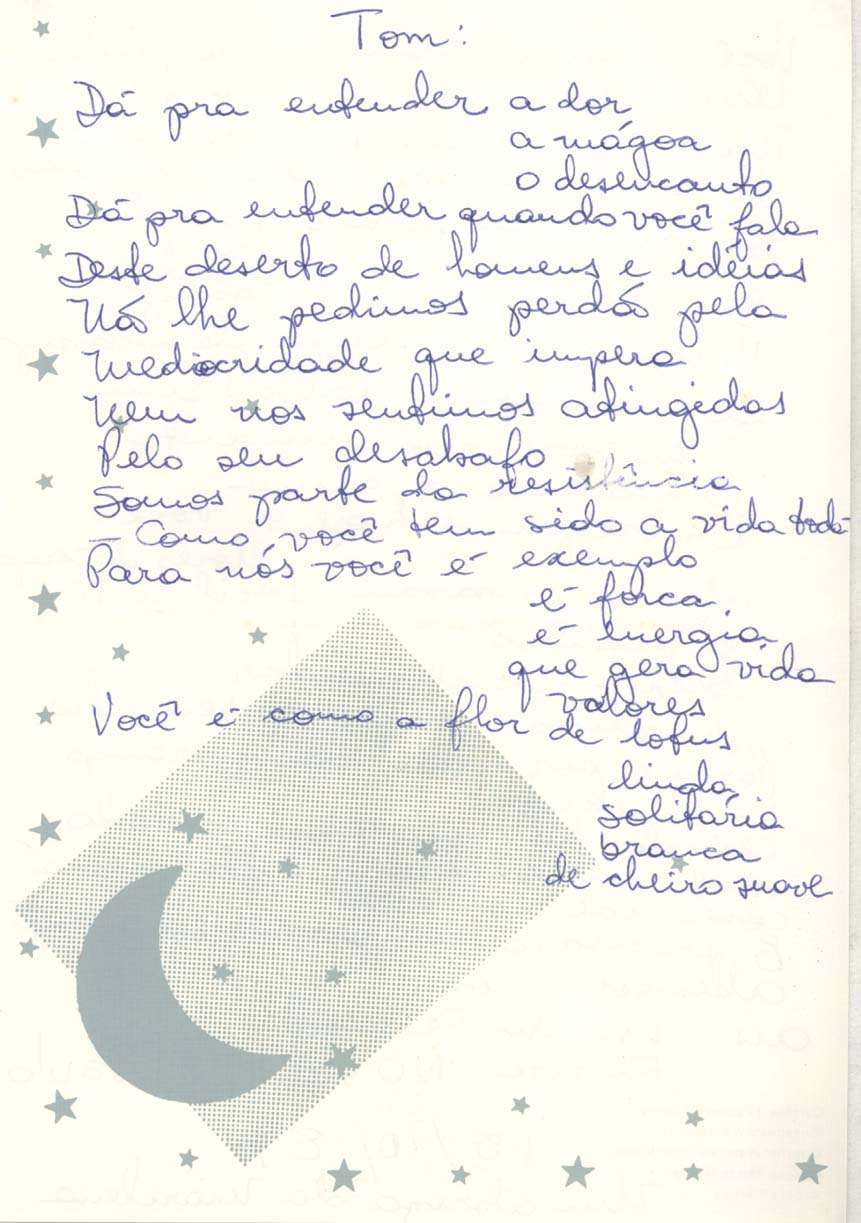 Tom:
Dá pra entender a dor
a mágoa
o desencanto
Dá pra entender quando você fala
Deste deserto de homens e idéias
Nós lhe pedimos perdão pela
Mediocridade que impera
Nem nos sentimos atingidas
Pelo seu desabafo
Somos parte da resistência
- Como você tem sido a vida toda
Para nós você é exemplo
é força
é energia
que gera vida
valores
Você é como a flor de lotus
linda
solitária
branca
de cheiro suave